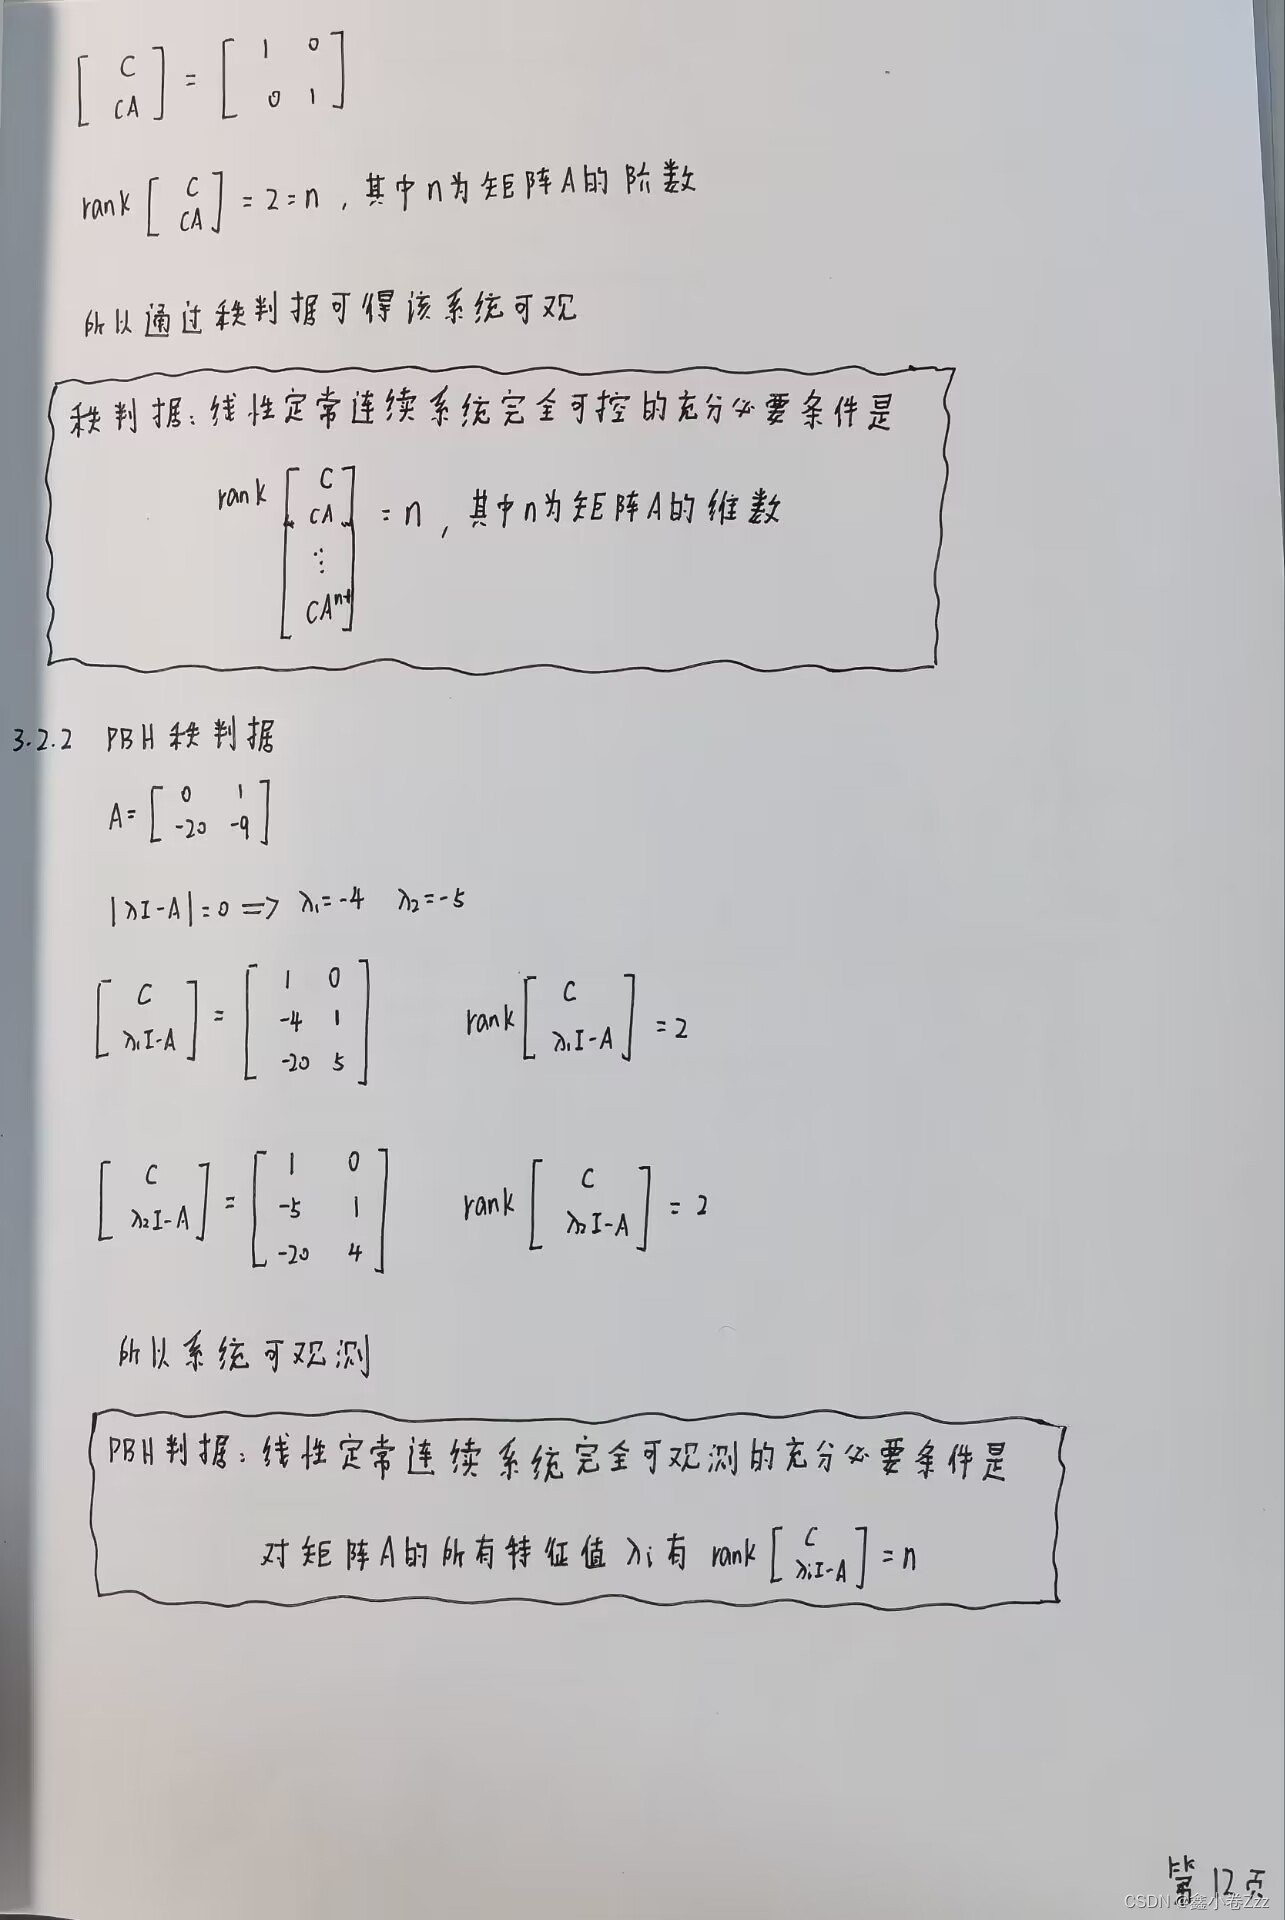 [C
CA] = [1 0
0 1]
rank [C
CA] = 2 = n , 其中n为矩阵A的阶数
所以通过秩判据可得该系统可观
秩判据: 线性定常连续系统完全可控的充分必要条件是
rank [C
CA
⋮
CAⁿ⁻¹] = n , 其中n为矩阵A的维数
3.2.2 PBH秩判据
A= [0 1
-20 -9]
|λI-A|=0 => λ₁=-4 λ₂=-5
[C
λ₁I-A] = [1 0
-4 1
-20 5] rank [C
λ₁I-A] = 2
[C
λ₂I-A] = [1 0
-5 1
-20 4] rank [C
λ₂I-A] = 2
所以系统可观测
PBH判据: 线性定常连续系统完全可观测的充分必要条件是
对矩阵A的所有特征值λi有 rank [C
λiI-A] = n
第12页
CSDN @鑫小卷Zzz